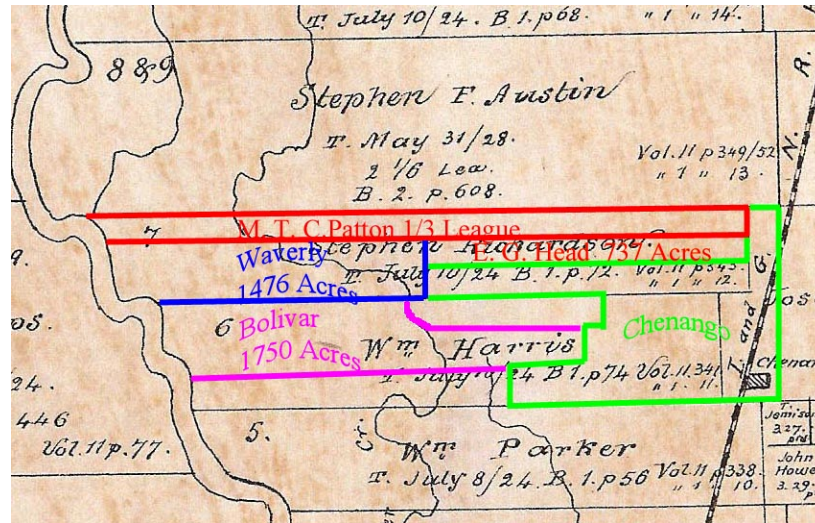 T. July 10/24. B. 1. p 68.
" 1 " 14.
N. R.
8 & 9
Stephen F. Austin
T. May 31/28.
2 1/6 Lea.
B. 2. p. 608.
Vol. 11 p 349/52
" 1 " 13.
7
M. T. C.Patton 1/3 League
Stephen Richardson.
E. G. Head 737 Acres
Waverly
1476 Acres
T. July 10/24 B. 1. p. 12.
Vol. 11 p 343.
" 1 " 12.
I. and G.
6
Bolivar
1750 Acres
Chenango
Wm Harris
T. July 10/24 B 1. p 74
Vol. 11. 341
" 1 " 11.
9.
os.
24.
446
Vol. 11 p. 77.
5.
Cr.
Wm Parker
T. July 8/24. B. 1. p 56
Vol. 11 p 338.
" 1 " 10.
Jos
Chenan
Jemiso
3.27.
John
Howe
3.29.